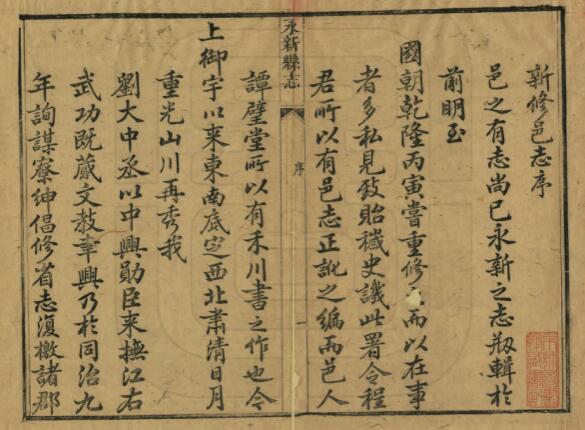 新修邑志序
邑之有志尚已永新之志刱輯於
前明至
國朝乾隆丙寅嘗重修而以在事
者多私見致貽穢史譏此署令程
君所以有邑志正訛之編而邑人
永新縣志
序
一
譚璧堂所以有禾川書之作也今
上御宇以来東南底定西北肅清日月
重光山川再秀我
劉大中丞以中興勛臣来撫江右
武功既蕆文教聿興乃於同治九
年詢謀寮紳倡修省志復檄諸郡